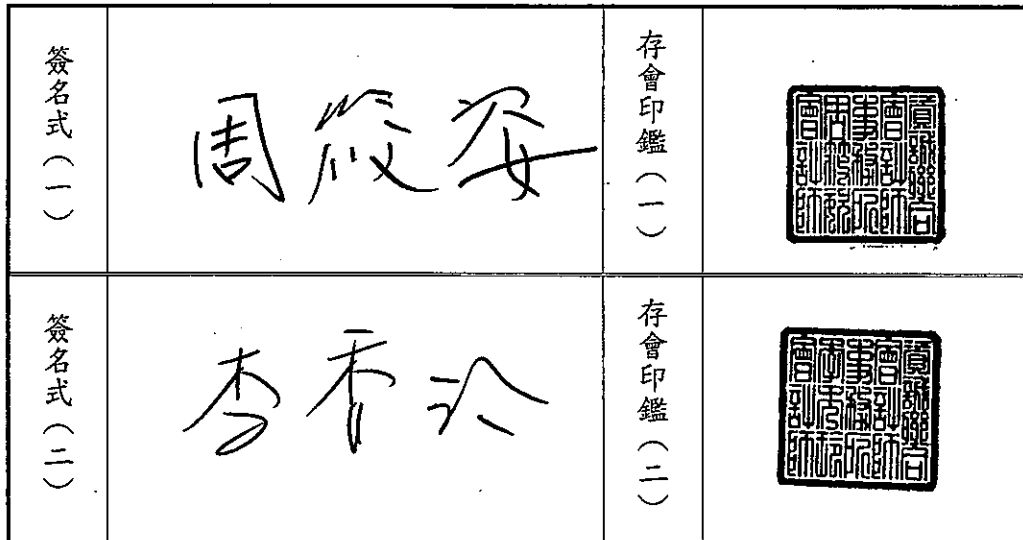 簽名式（一）
周筱姿
存會印鑑（一）
資誠聯合
會計師
事務所
周筱姿
會計師
簽名式（二）
李秀玲
存會印鑑（二）
資誠聯合
會計師
事務所
李秀玲
會計師